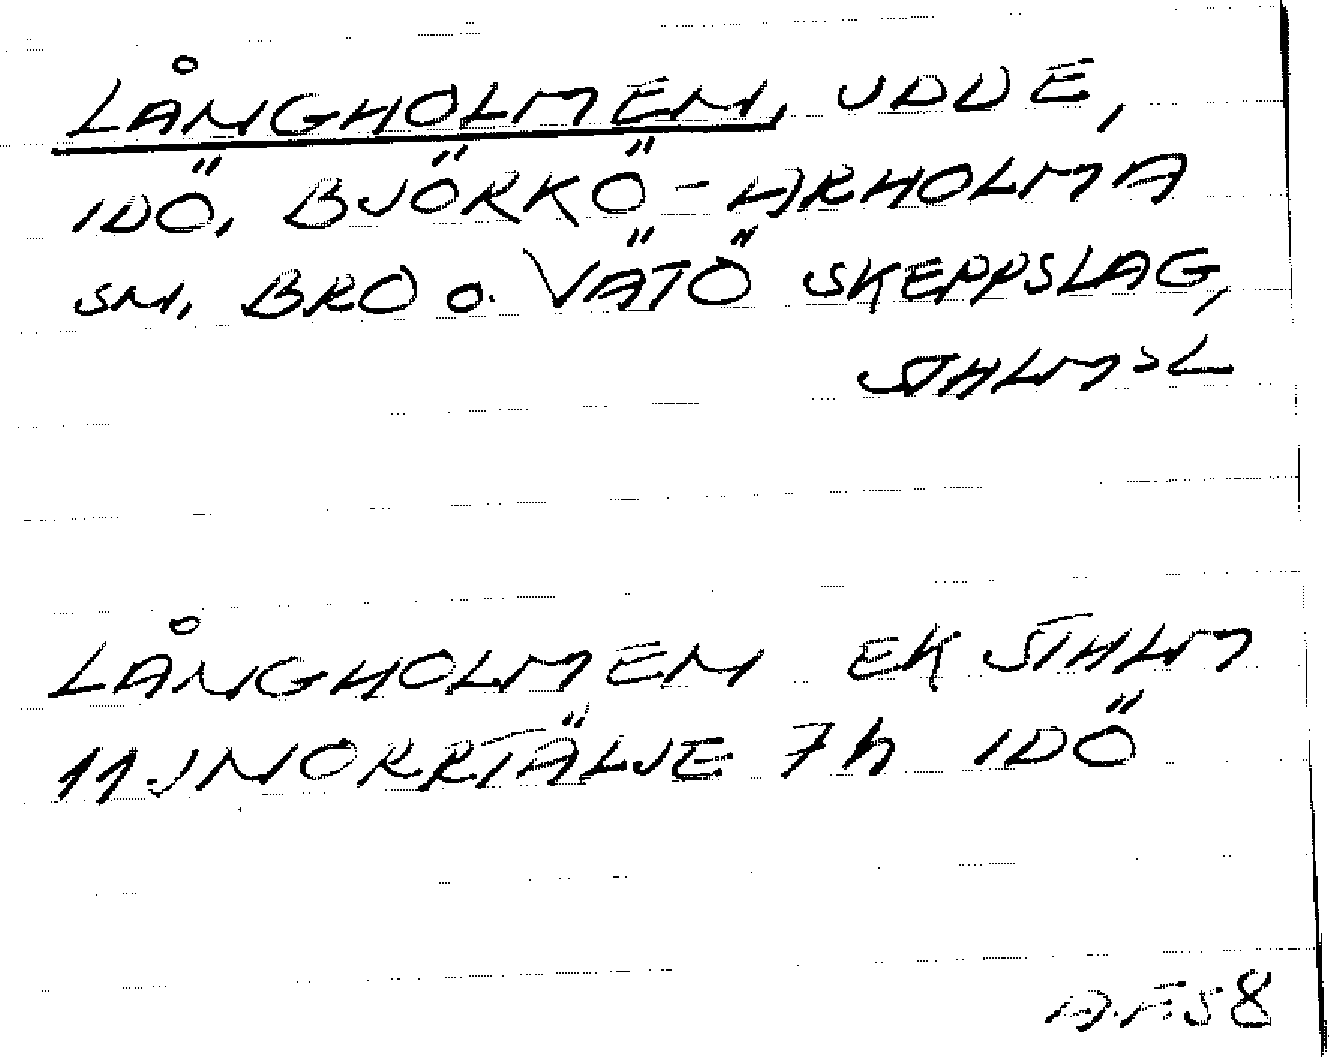 LÅNGHOLMEN, UDDE,
IDÖ, BJÖRKÖ-ARHOLMA
SN, BRO o. VÄTÖ SKEPPSLAG,
STHLMSL
LÅNGHOLMEN EK STHLM
11J NORRTÄLJE 7h IDÖ
A.F. 58